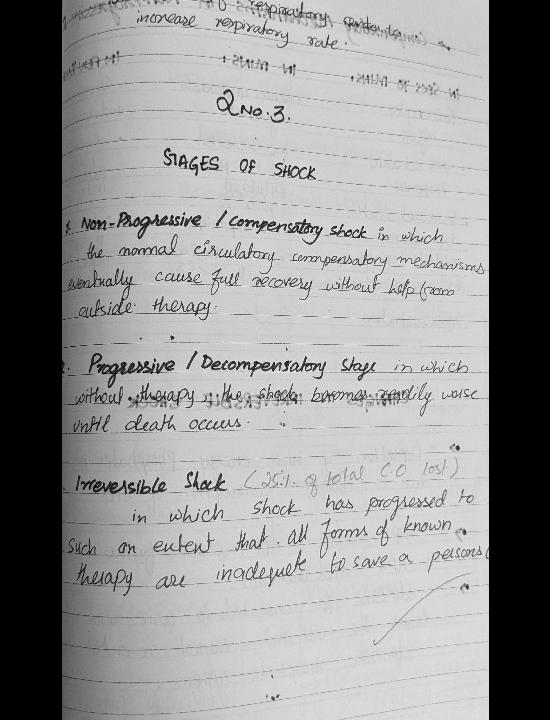 respiratory
increase respiratory rate.
Q No. 3.
STAGES OF SHOCK
1. Non-Progressive / compensatory shock in which
the normal circulatory compensatory mechanisms
eventually cause full recovery without help from
outside therapy.
Progressive / Decompensatory stage in which
without therapy, the shock becomes worse
until death occurs.
Irreversible Shock (25%. of total CO lost)
in which shock has progressed to
such an extent that all forms of known
therapy are inadequate to save a persons